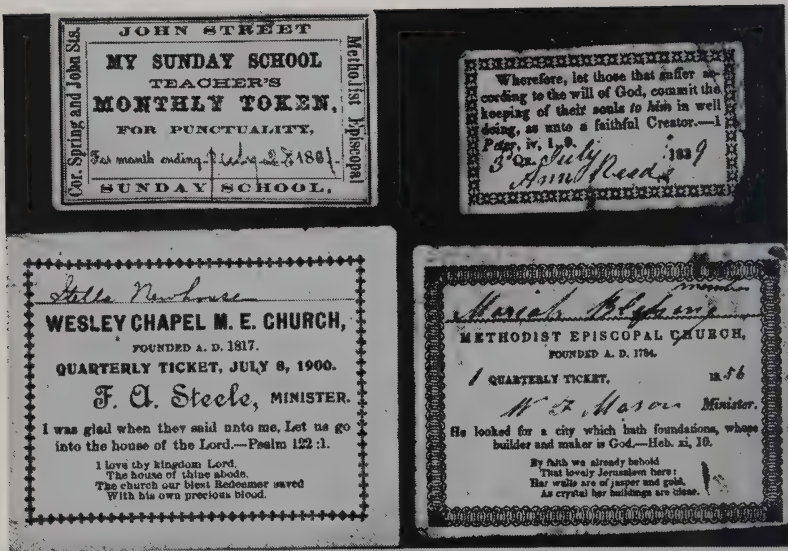 JOHN STREET
Cor. Spring and John Sts.
MY SUNDAY SCHOOL
TEACHER'S
MONTHLY TOKEN,
FOR PUNCTUALITY,
For month ending July 28 1881.
SUNDAY SCHOOL,
Methodist Episcopal
Wherefore, let those that suffer ac-
cording to the will of God, commit the
keeping of their souls to him in well
doing, as unto a faithful Creator.—1
Peter, iv, 19.
3 Qr. July 1839
Ann Reed
Stella Newhouse
WESLEY CHAPEL M. E. CHURCH,
FOUNDED A. D. 1817.
QUARTERLY TICKET, JULY 8, 1900.
F. A. Steele, MINISTER.
I was glad when they said unto me, Let us go
into the house of the Lord.—Psalm 122:1.
I love thy kingdom Lord,
The house of thine abode,
The church our blest Redeemer saved
With his own precious blood.
member
Mariah
METHODIST EPISCOPAL CHURCH,
FOUNDED A. D. 1784.
1 QUARTERLY TICKET, 1856
W F Mason Minister.
He looked for a city which hath foundations, whose
builder and maker is God.—Heb. xi, 10.
By faith we already behold
That lovely Jerusalem here:
Her walls are of jasper and gold,
As crystal her buildings are clear.